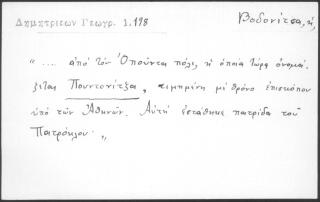 Δημητριεων Γεωγρ. 1.198
Βοδονίτσα, ἡ,
"... ἀπὸ τὸν Ὀποῦντα πόλι, ἡ ὁποία τώρα ὀνομά-
ζεται Πουντονίτζα, τιμημένη μὲ θρόνο ἐπισκόπου
ὑπὸ τῶν Ἀθηνῶν. Αὐτὴ ἐστάθηκε πατρίδα τοῦ
Πατρόκλου"